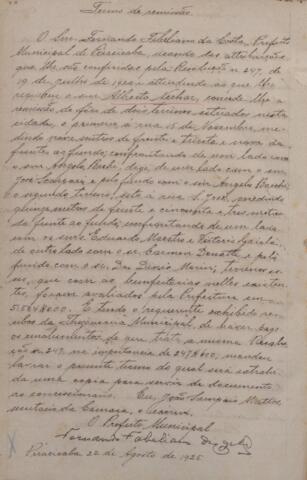 Termo de remissão.
O Snr. Fernando Febeliano da Costa, Prefeito
Municipal de Piracicaba, usando das attribuições
que lhe são conferidas pela Resolução n. 247, de
19 de Julho de 1920 e attendendo ao que lhe
requereu o snr. Alberto concede lhe a
remissão de fôro de dois terrenos situados nesta
cidade, o primeiro a rua 15 de Novembro, me-
dindo nove metros de frente e trinta e nove da
frente ao fundo; confrontando de um lado com
o snr. Angelo de outro lado com o snr.
José e pelo fundo com o snr. Angelo
o segundo terreno, sito a rua S. José, medindo
metros de frente e cincoenta e tres metros
da frente ao fundo, confrontando de um lado
com os snrs. Eduardo e
de outro lado com o sr. Carmem e pelo
fundo com o sr. Dr. terrenos es-
ses, que com as bemfeitorias nelles existen-
tes, foram avaliados pela Prefeitura em
E tendo o requerente exhibido re-
cibos da Thesouraria Municipal de haver pago
os emolumentos de que trata a mesma Resolu-
ção n. 247 na importancia de 247$600, mandou
lavrar o presente termo do qual será extrahi-
da uma copia para servir de documento
ao concessionario. Eu, João Sampaio Mattos,
da Camara, o escrevi.
O Prefeito Municipal
Fernando Febeliano da Costa
Piracicaba 22 de Agosto de 1925